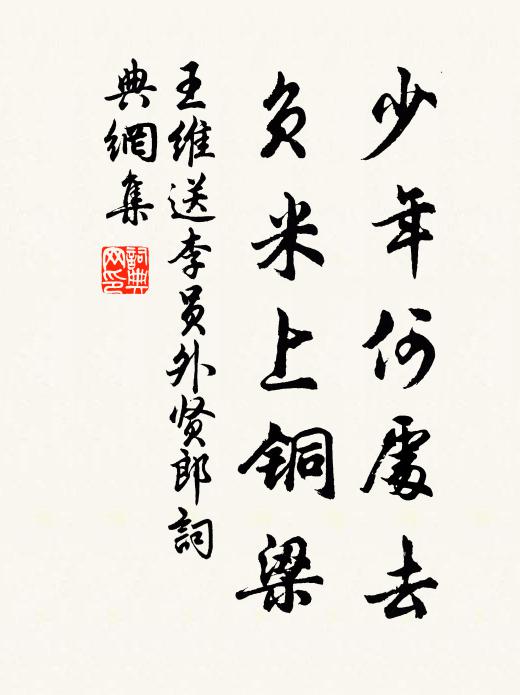 少年何處去
负米上铜梁
王维送李员外贤郎詞
典網集
詞典网印